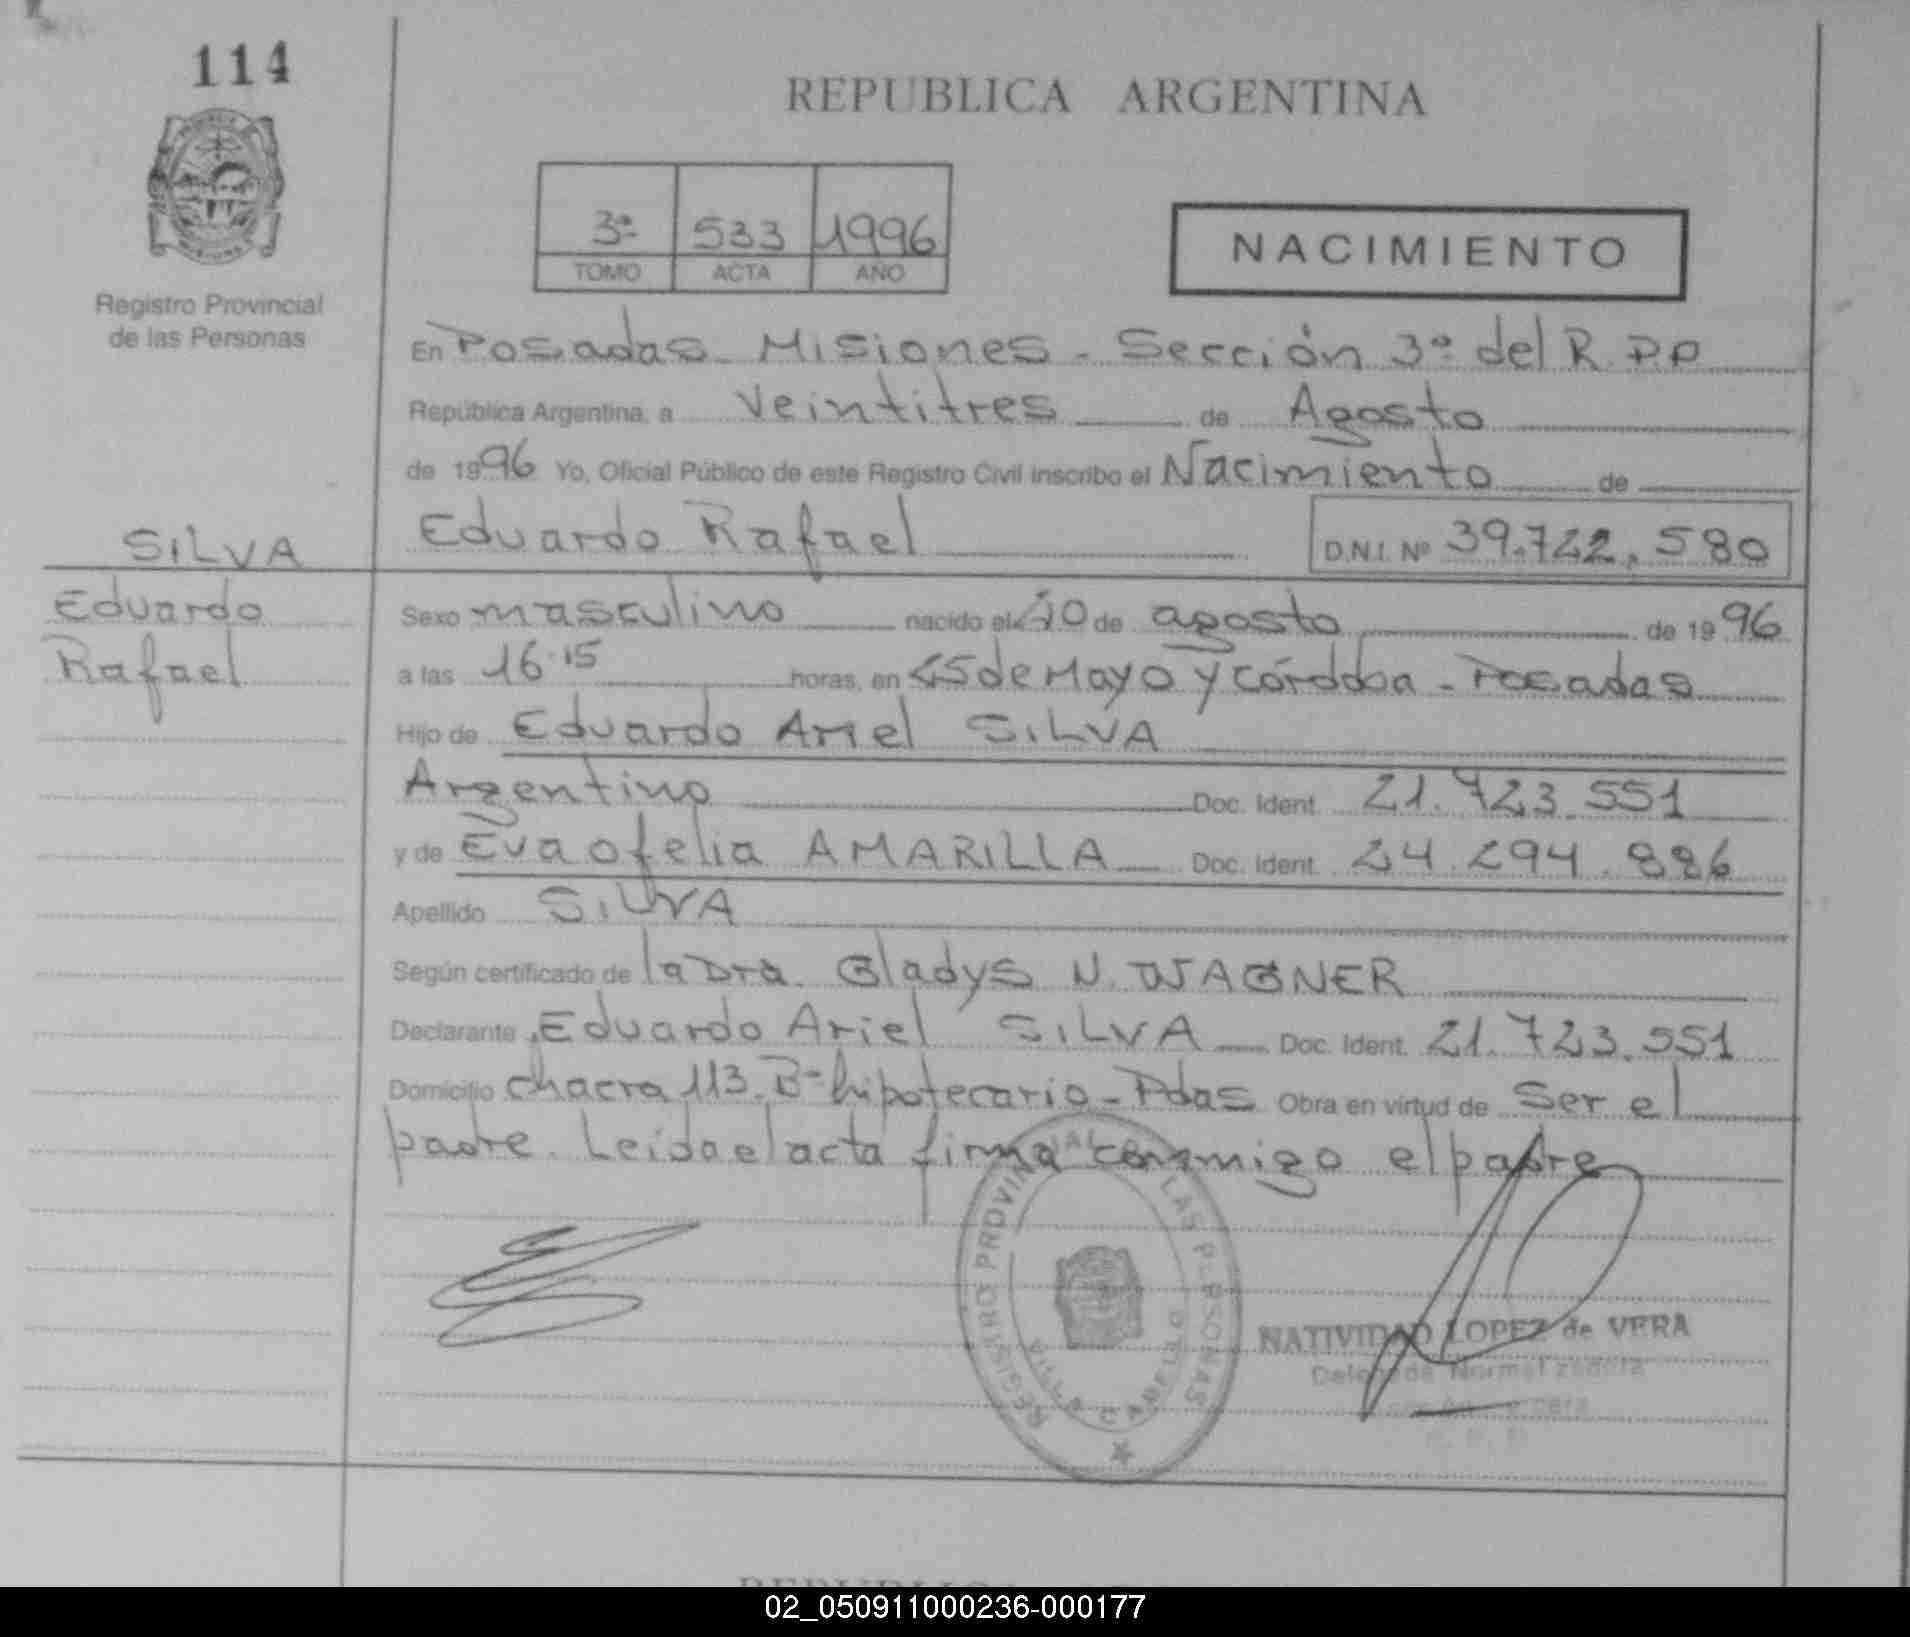 114
REPUBLICA ARGENTINA
3ª 533 1996
TOMO ACTA AÑO
NACIMIENTO
Registro Provincial
de las Personas
En Posadas - Misiones - Sección 3ª del R.P.P
República Argentina, a Veintitres de Agosto
de 1996 Yo, Oficial Público de este Registro Civil inscribo el Nacimiento de
SILVA Eduardo Rafael D.N.I. Nº 39.722.580
Eduardo
Rafael
Sexo masculino nacido el 20 de agosto de 1996
a las 16.15 horas, en 25 de Mayo y Córdoba - Posadas
Hijo de Eduardo Ariel SILVA
Argentino Doc. Ident. 21.723.551
y de Eva ofelia AMARILLA Doc. Ident. 24.294.886
Apellido SILVA
Según certificado de la Dra. Gladys N. WAGNER
Declarante Eduardo Ariel SILVA Doc. Ident. 21.723.551
Domicilio chacra 113. Bº hipotecario - Pdas Obra en virtud de Ser el
padre. Leida el acta firma conmigo el padre
REGISTRO PROVINCIAL DE LAS PERSONAS
VILLA CABELLO
NATIVIDAD LOPEZ de VERA
Delegada Normalizadora
R. P. P.
02_050911000236-000177